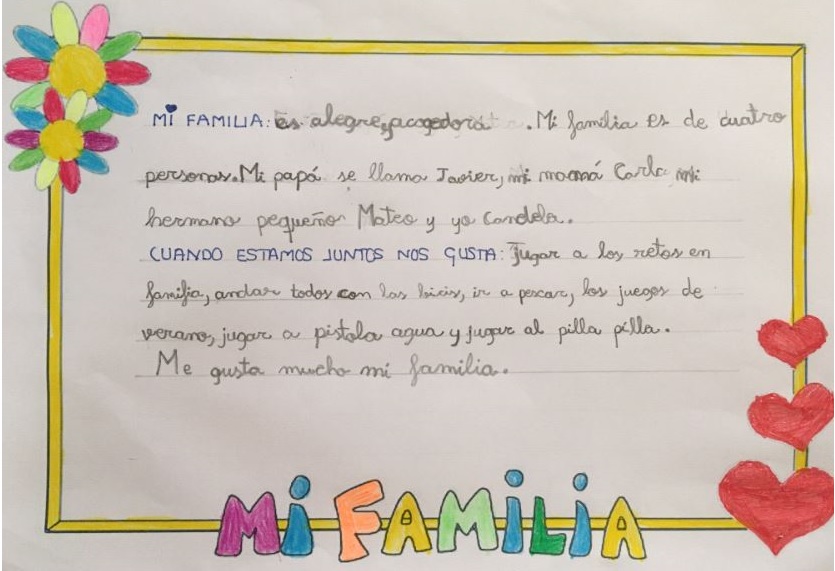 MI FAMILIA: es alegre, acogedora. Mi familia es de cuatro
personas. Mi papá se llama Javier, mi mamá Carla mi
hermano pequeño Mateo y yo Candela.
CUANDO ESTAMOS JUNTOS NOS GUSTA: Jugar a los retos en
familia, andar todos con las bicis, ir a pescar, los juegos de
verano, jugar a pistola agua y jugar al pilla pilla.
Me gusta mucho mi familia.
MI FAMILIA